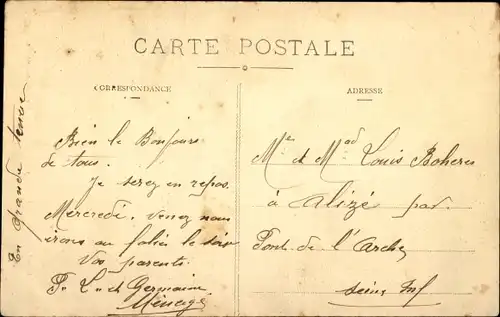 CARTE POSTALE
CORRESPONDANCE
ADRESSE
En grande tenue
Bien le Bonjours
de tous.
Je serez en repos.
Mercredi. Venez nous
irons au folies le soir
Vos parents
P. L. et Germaine
Ménage
Mr et Mad Louis Boheres
à Alizé par
Pont de l'Arche
Seine Inf